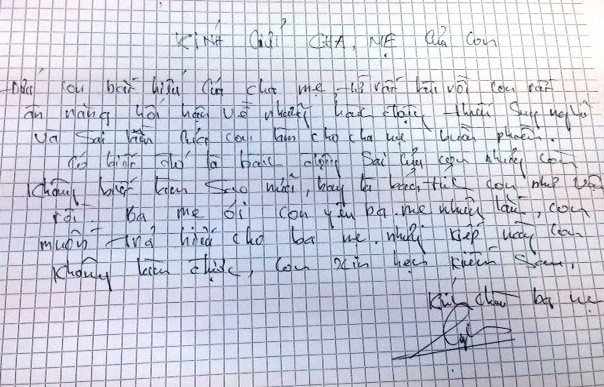 KÍNH GửI CHA, MẸ của con
Đứa con bất hiếu của cha mẹ, từ vãn con rất
ăn năng hối hận về những hành động thiếu suy nghĩ
và sai lầm của con làm cho cha mẹ buồn phiền.
Có biết đó là hành động sai của con nhưng con
không biết làm sao nữa, hay là bế tắc con như vậy
rồi ba mẹ ơi con yêu ba mẹ nhiều lắm, con
muốn trả hiếu cho ba mẹ nhưng kiếp này con
không làm được, con xin hẹn kiếp sau.
Kính chào ba mẹ